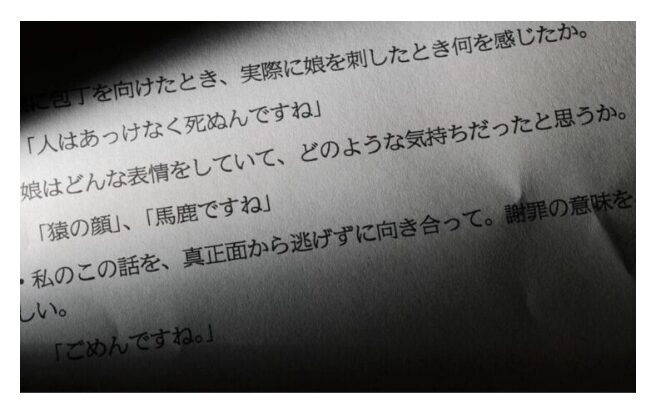 に包丁を向けたとき、実際に娘を刺したとき何を感じたか。
「人はあっけなく死ぬんですね」
娘はどんな表情をしていて、どのような気持ちだったと思うか。
「猿の顔」、「馬鹿ですね」
・私のこの話を、真正面から逃げずに向き合って。謝罪の意味を
しい。
「ごめんですね。」